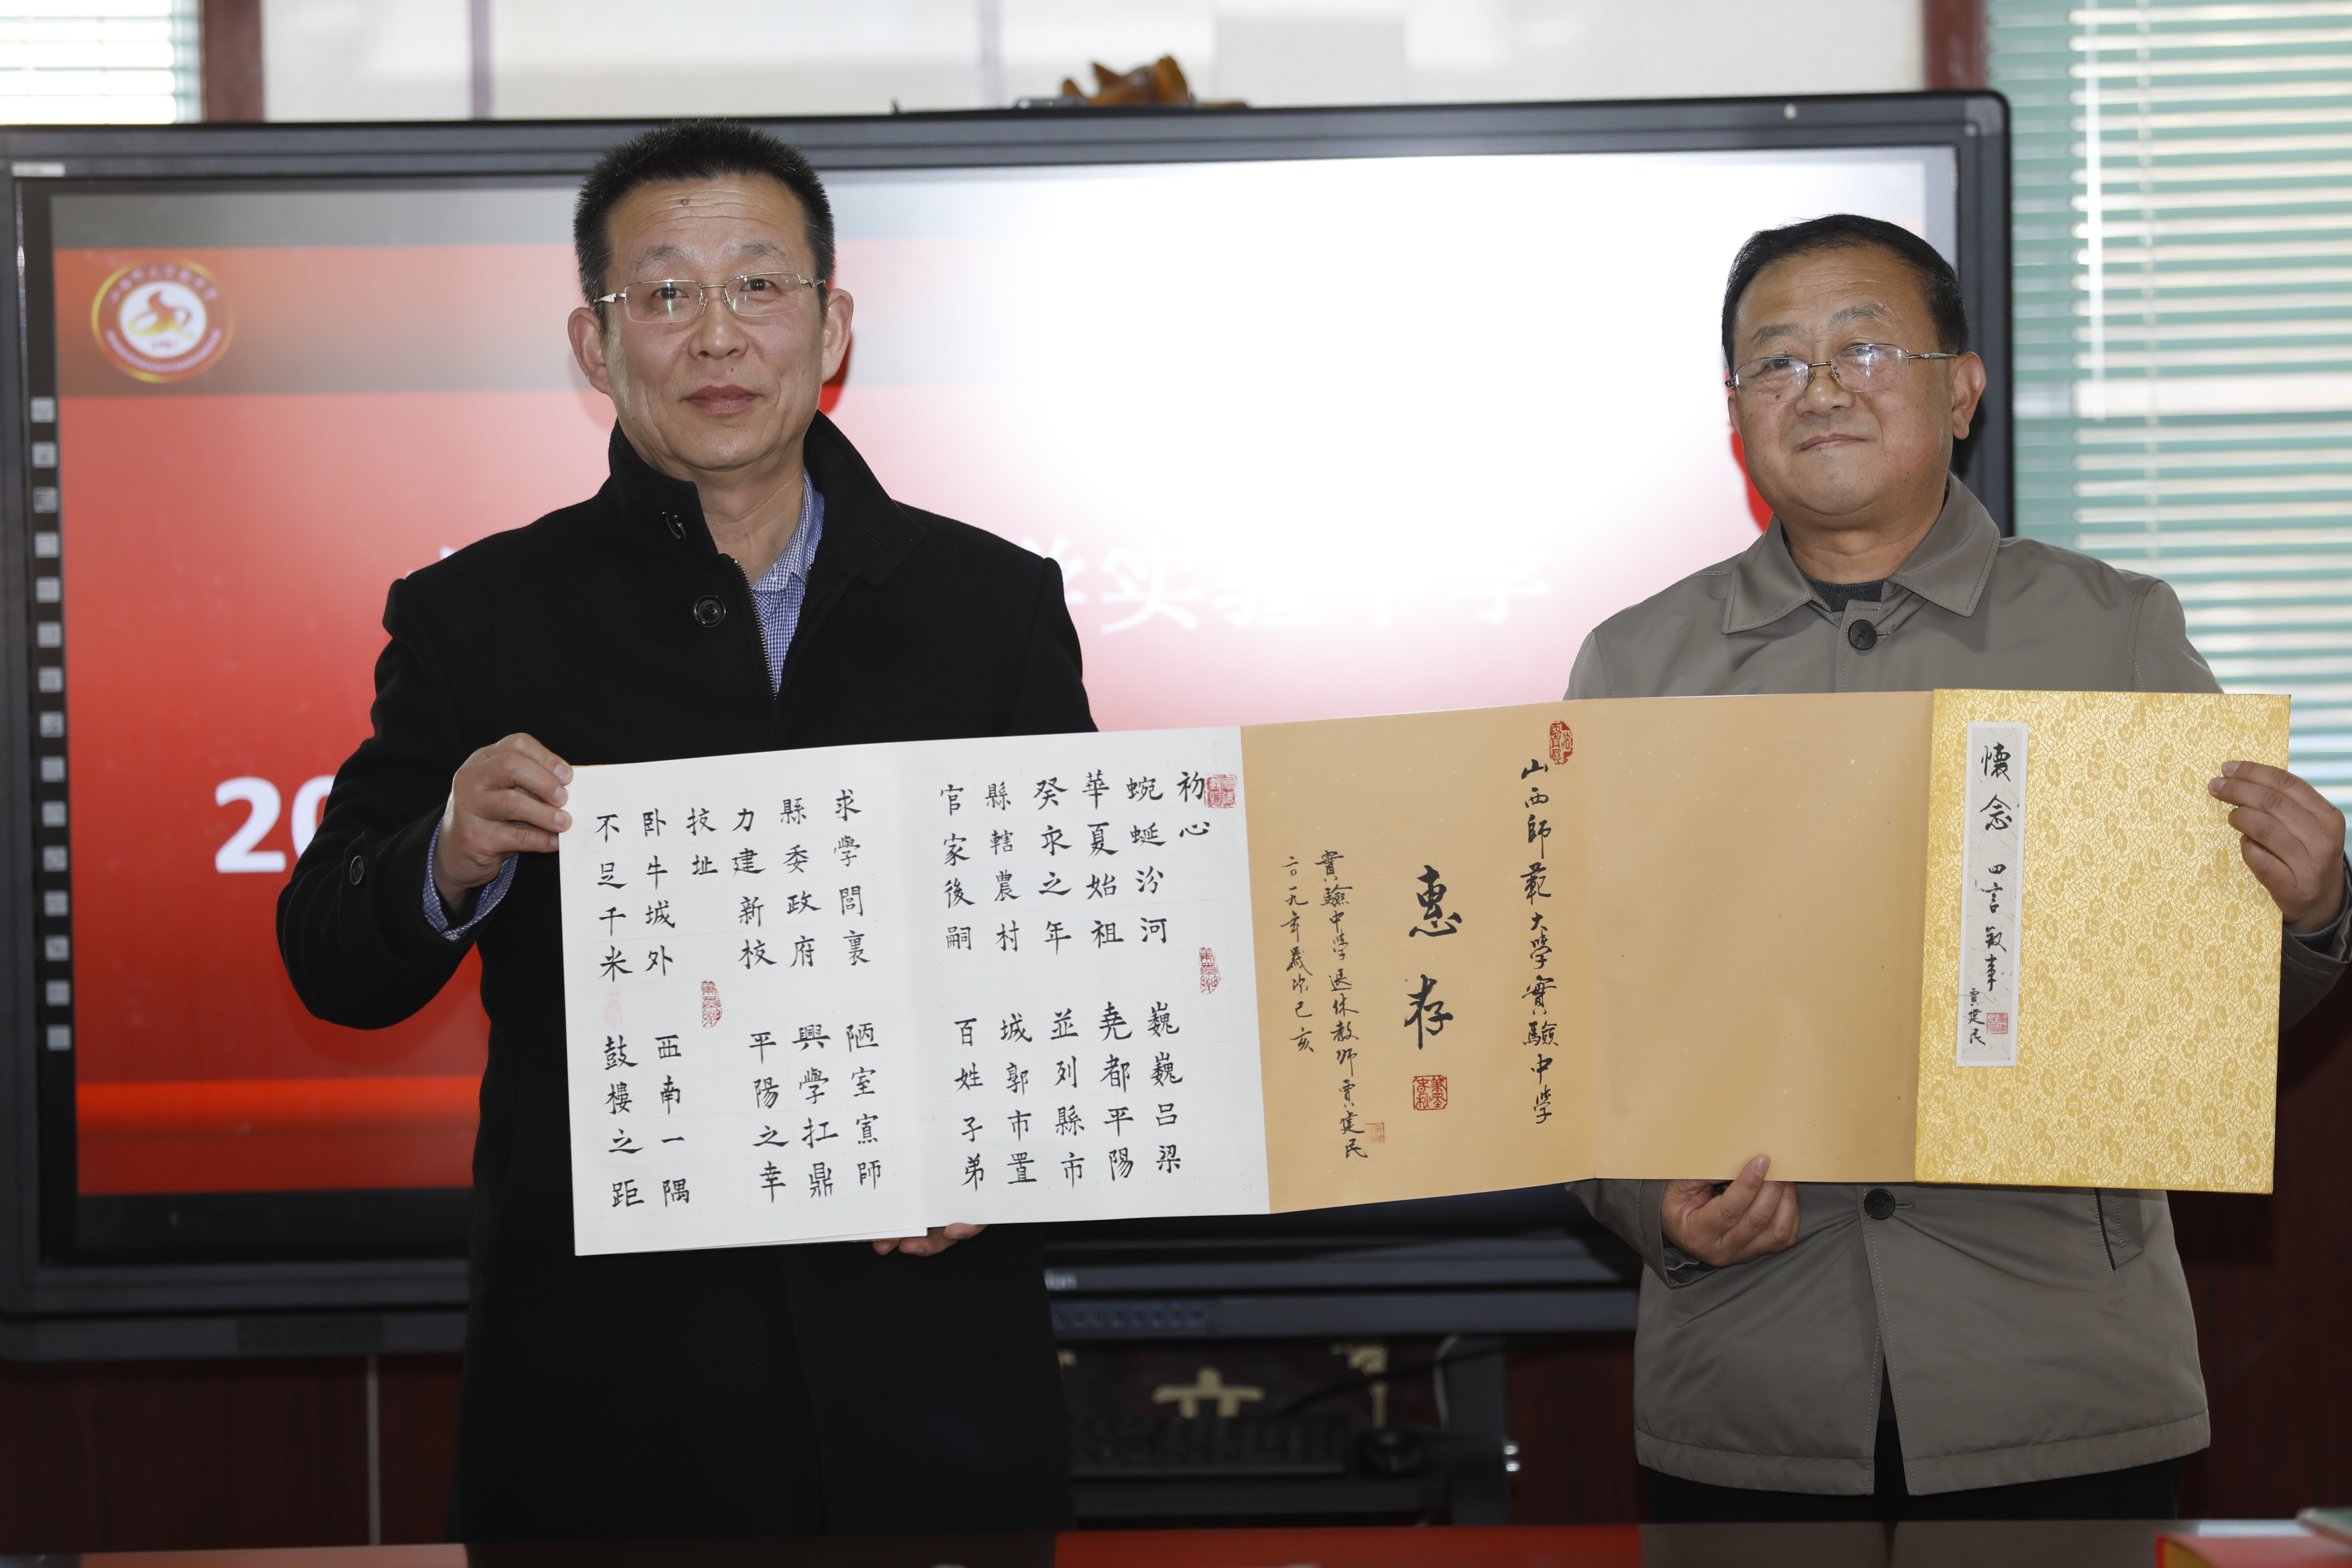 学实验中学
20
懷念 四言敘事
賈建民
山西師範大學實驗中學
惠存
實驗中學退休教師賈建民
二〇一九年歲次己亥
初心
蜿蜒汾河 巍巍呂梁
華夏始祖 堯都平陽
癸丑之年 並列縣市
縣轄農村 城郭市置
官家後嗣 百姓子弟
求學閭裏 陋室窰師
縣委政府 興學扛鼎
力建新校 平陽之幸
技址
卧牛城外 西南一隅
不足千米 鼓樓之距